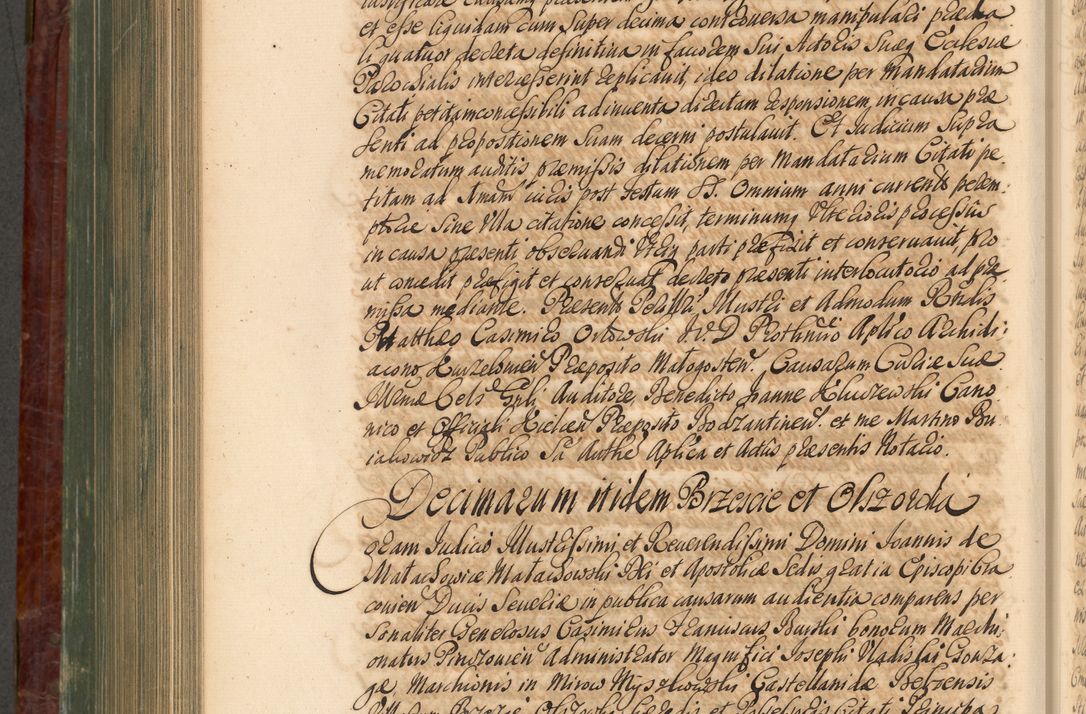 et esse liquidam cum super decima controversa manipulari prædia
li quatuor decreta definitiva in favorem sui Actoris suæq Ecclesiæ
Parochialis intercesserint replicavit, ideo dilatione per Mandatarium
Citati petita inconcessibili adinventa directam responsionem in causa præ
senti ad propositionem suam decerni postulavit. Et Judicium supra
memoratum auditis præmissis dilationem per Mandatarium Citati pe
titam ad Imam juris post Festum SS. Omnium anni currentis perem:
ptorie sine ulla citatione concessit, terminumq ulterioris processus
in causa præsenti observandi utriq parti præfixit et conservavit, pro
ut concedit præfigit et conservat decreto præsenti interlocutorio ad præ
missa mediante. Præsentibus Illustri et Admodum Rndis
Mattheo Casimiro Orłowski J.V.D Prothnrio Aplico Archidi:
acono Kurzelovien Præposito Małogosten. Causarum Curiæ Suæ
Illmæ Cels Epli Auditore, Benedicto Joanne Kluszewski Cano
nico et Officiali Kielcen Præposito Bodzantinen. et me Martino Bu
Publico Sa Authe Aplica et Actus præsentis Notario.
Decimarum itidem Brzescie et Olszowka
Coram Judicio Illustrissimi et Reverendissimi Domini Joannis de
Małachowice Małachowski Dei et Apostolicæ Sedis gratia Episcopi Cra
covien Ducis Severiæ in publica causarum audientia comparens per
sonaliter Generosus Casimirus Franciscus Burski bonorum Marchi
onatus Pinczovien Administrator Magnifici Josephi Vladislai Gonza:
gæ Marchionis in Mirow Myszkowski Castellanidæ Belzensis